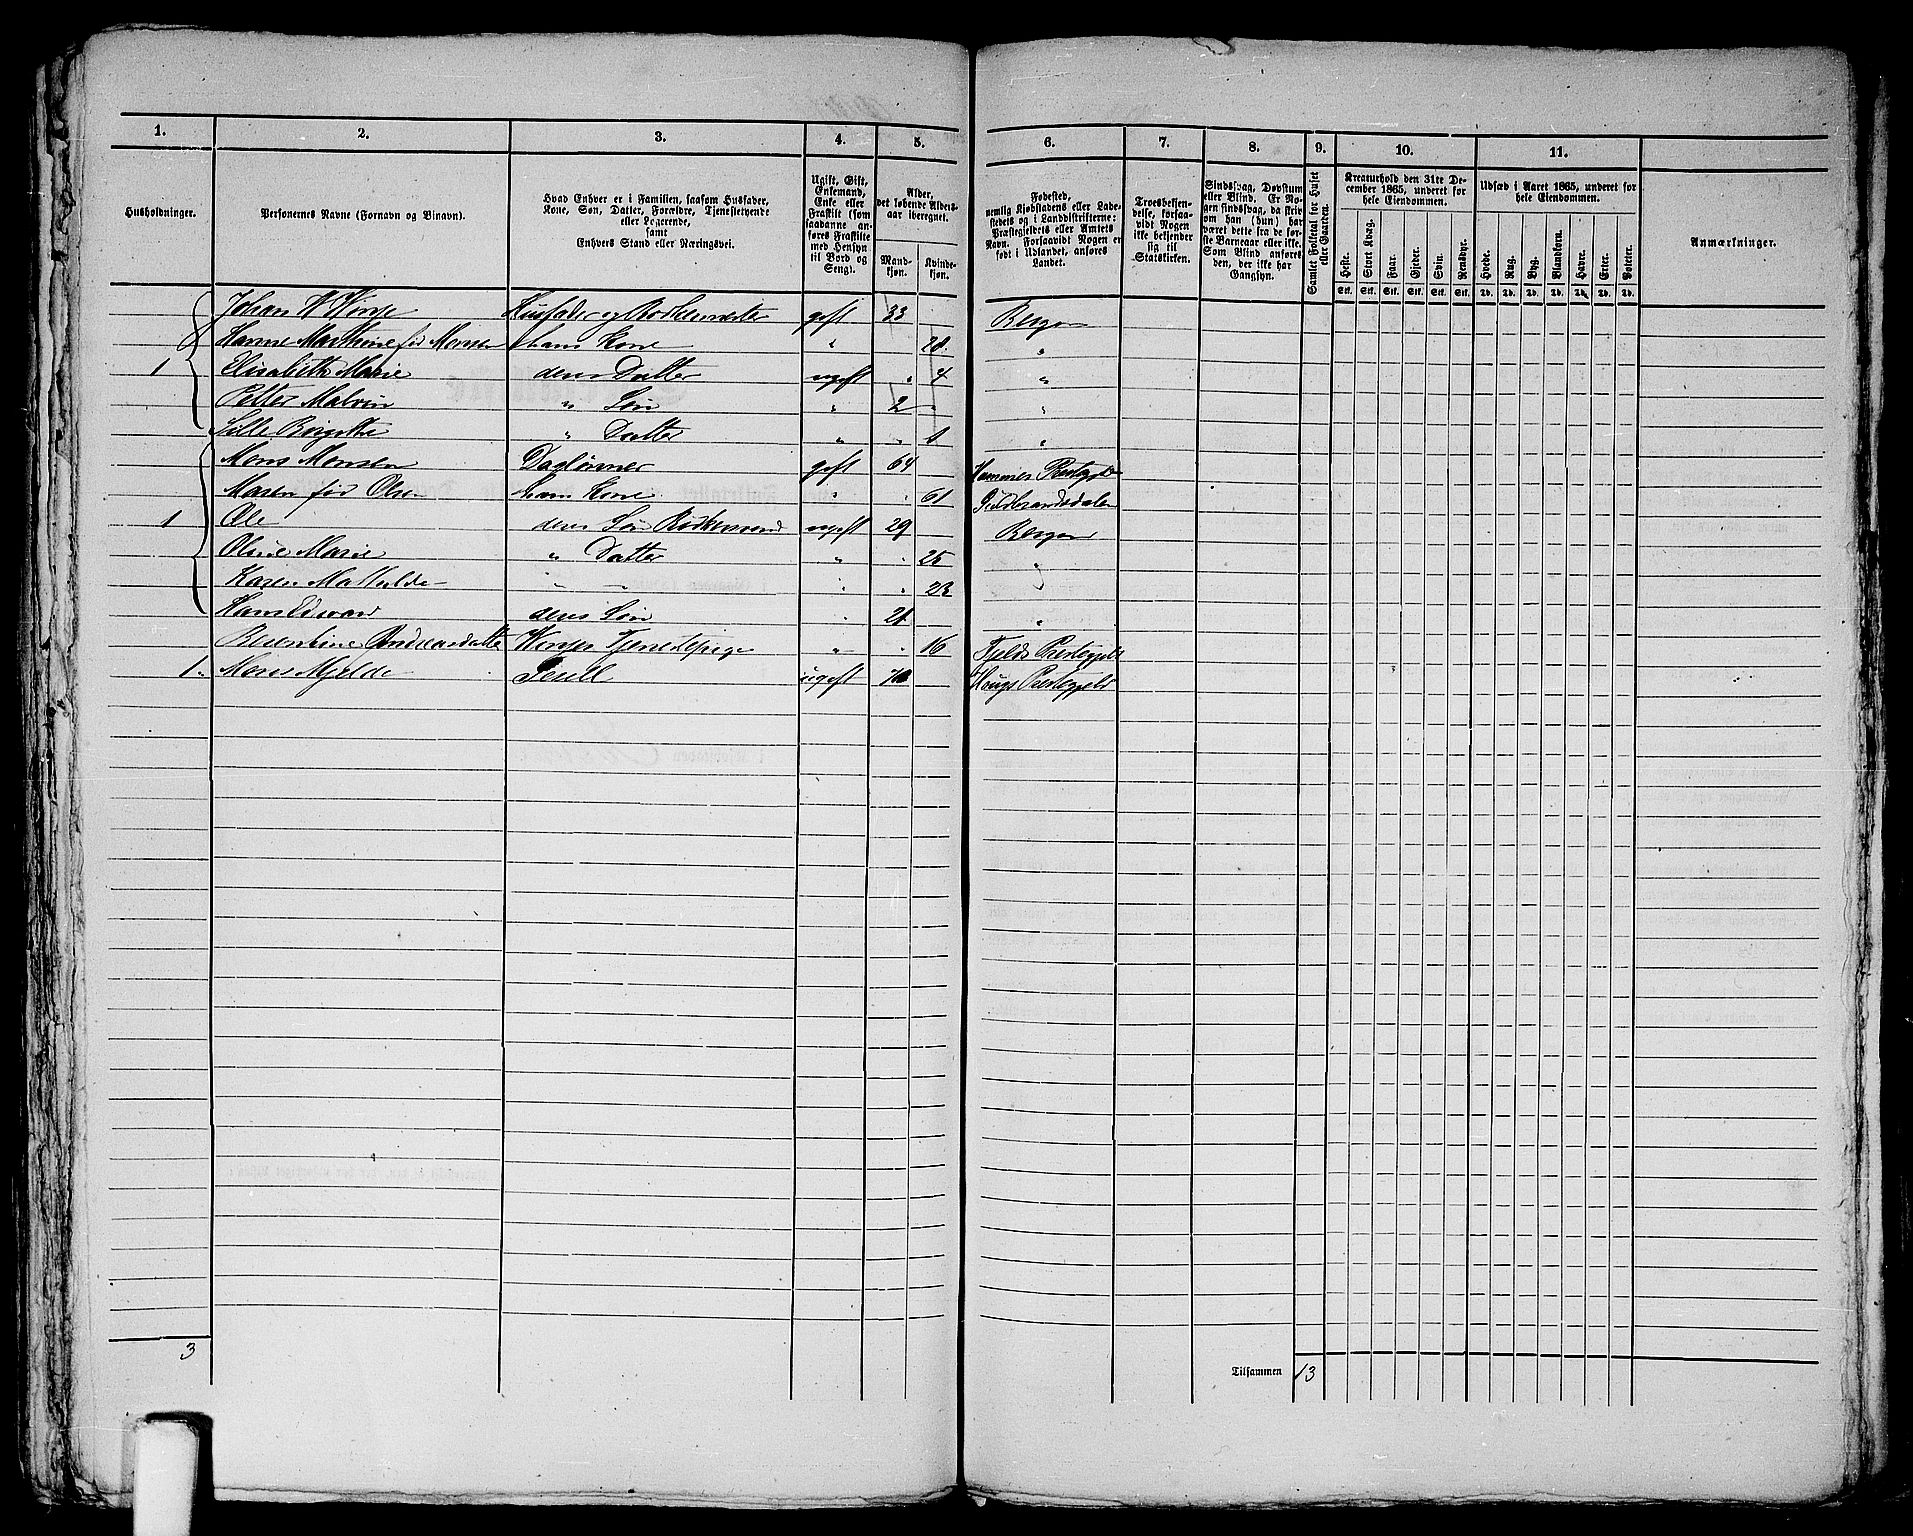 1. 2. 3. 4. 5. 6. 7. 8. 9. 10. 11.
Husholdninger.
Personernes Navne (Fornavn og Binavn).
Hvad Enhver er i Familien, saasom Husfader,
Kone, Søn, Datter, Forældre, Tjenestetyende
eller Logerende,
samt
Enhvers Stand eller Næringsvei.
Ugift, Gift,
Enkemand,
Enke eller
Fraskilt (som
saadanne an-
føres Fraskilte
med Hensyn
til Bord og
Seng).
Alder,
det løbende Alders-
aar iberegnet.
Mand-
kjøn.
Kvinde-
kjøn.
Fødested,
nemlig Kjøbstadens eller Lade-
stedets og i Landdistrikterne:
Præstegjeldets eller Amtets
Navn. Forsaavidt Nogen er
født i Udlandet, anføres
Landet.
Troesbekjen-
delse, forsaa-
vidt Nogen
ikke bekjender
sig til
Statskirken.
Sindssvag, Døvstum
eller Blind. Er No-
gen sindssvag, da skriv
om han (hun) har
været dette fra de før-
ste Barneaar eller ikke.
Som Blind anføres
den, der ikke har
Gangsyn.
Samlet Folketal for Huset
eller Gaarden.
Kreaturhold den 31te De-
cember 1865, underet for
hele Eiendommen.
Heste. Stort Kvæg. Faar. Gjeder. Svin. Rensdyr.
Stk. Stk. Stk. Stk. Stk. Stk.
Udsæd i Aaret 1865, underet for
hele Eiendommen.
Hvede. Rug. Byg. Blandkorn. Havre. Erter. Poteter.
Td. Td. Td. Td. Td. Td. Td.
Anmærkninger.
Johan W Winje Husfader og gift 33 Bergen
Hanne Marthine fød Monsen hans Kone " 28. "
1 Elisabeth Marie deres Datter ugift " 4 "
Petter Malvin " Søn " 2 " "
Sille Birgitte " Datter " " 1 "
Mons Monsen Daglønner gift 64 Hammers Prestegjeld
Maren fød Olsen hans Kone " " 61 Gudbrandsdalen
1 Ole deres Søn ugift 29 Bergen
Oline Marie " Datter " " 25 "
Karen Mathilde " " " " 23 "
Hans Edvard deres Søn " 21 "
Andreasdatter Tjenestepige " " 16 Fjelds Prestegjeld
1 Mons Mjelde ugift Hougs Prestegjeld
3
Tilsammen 13